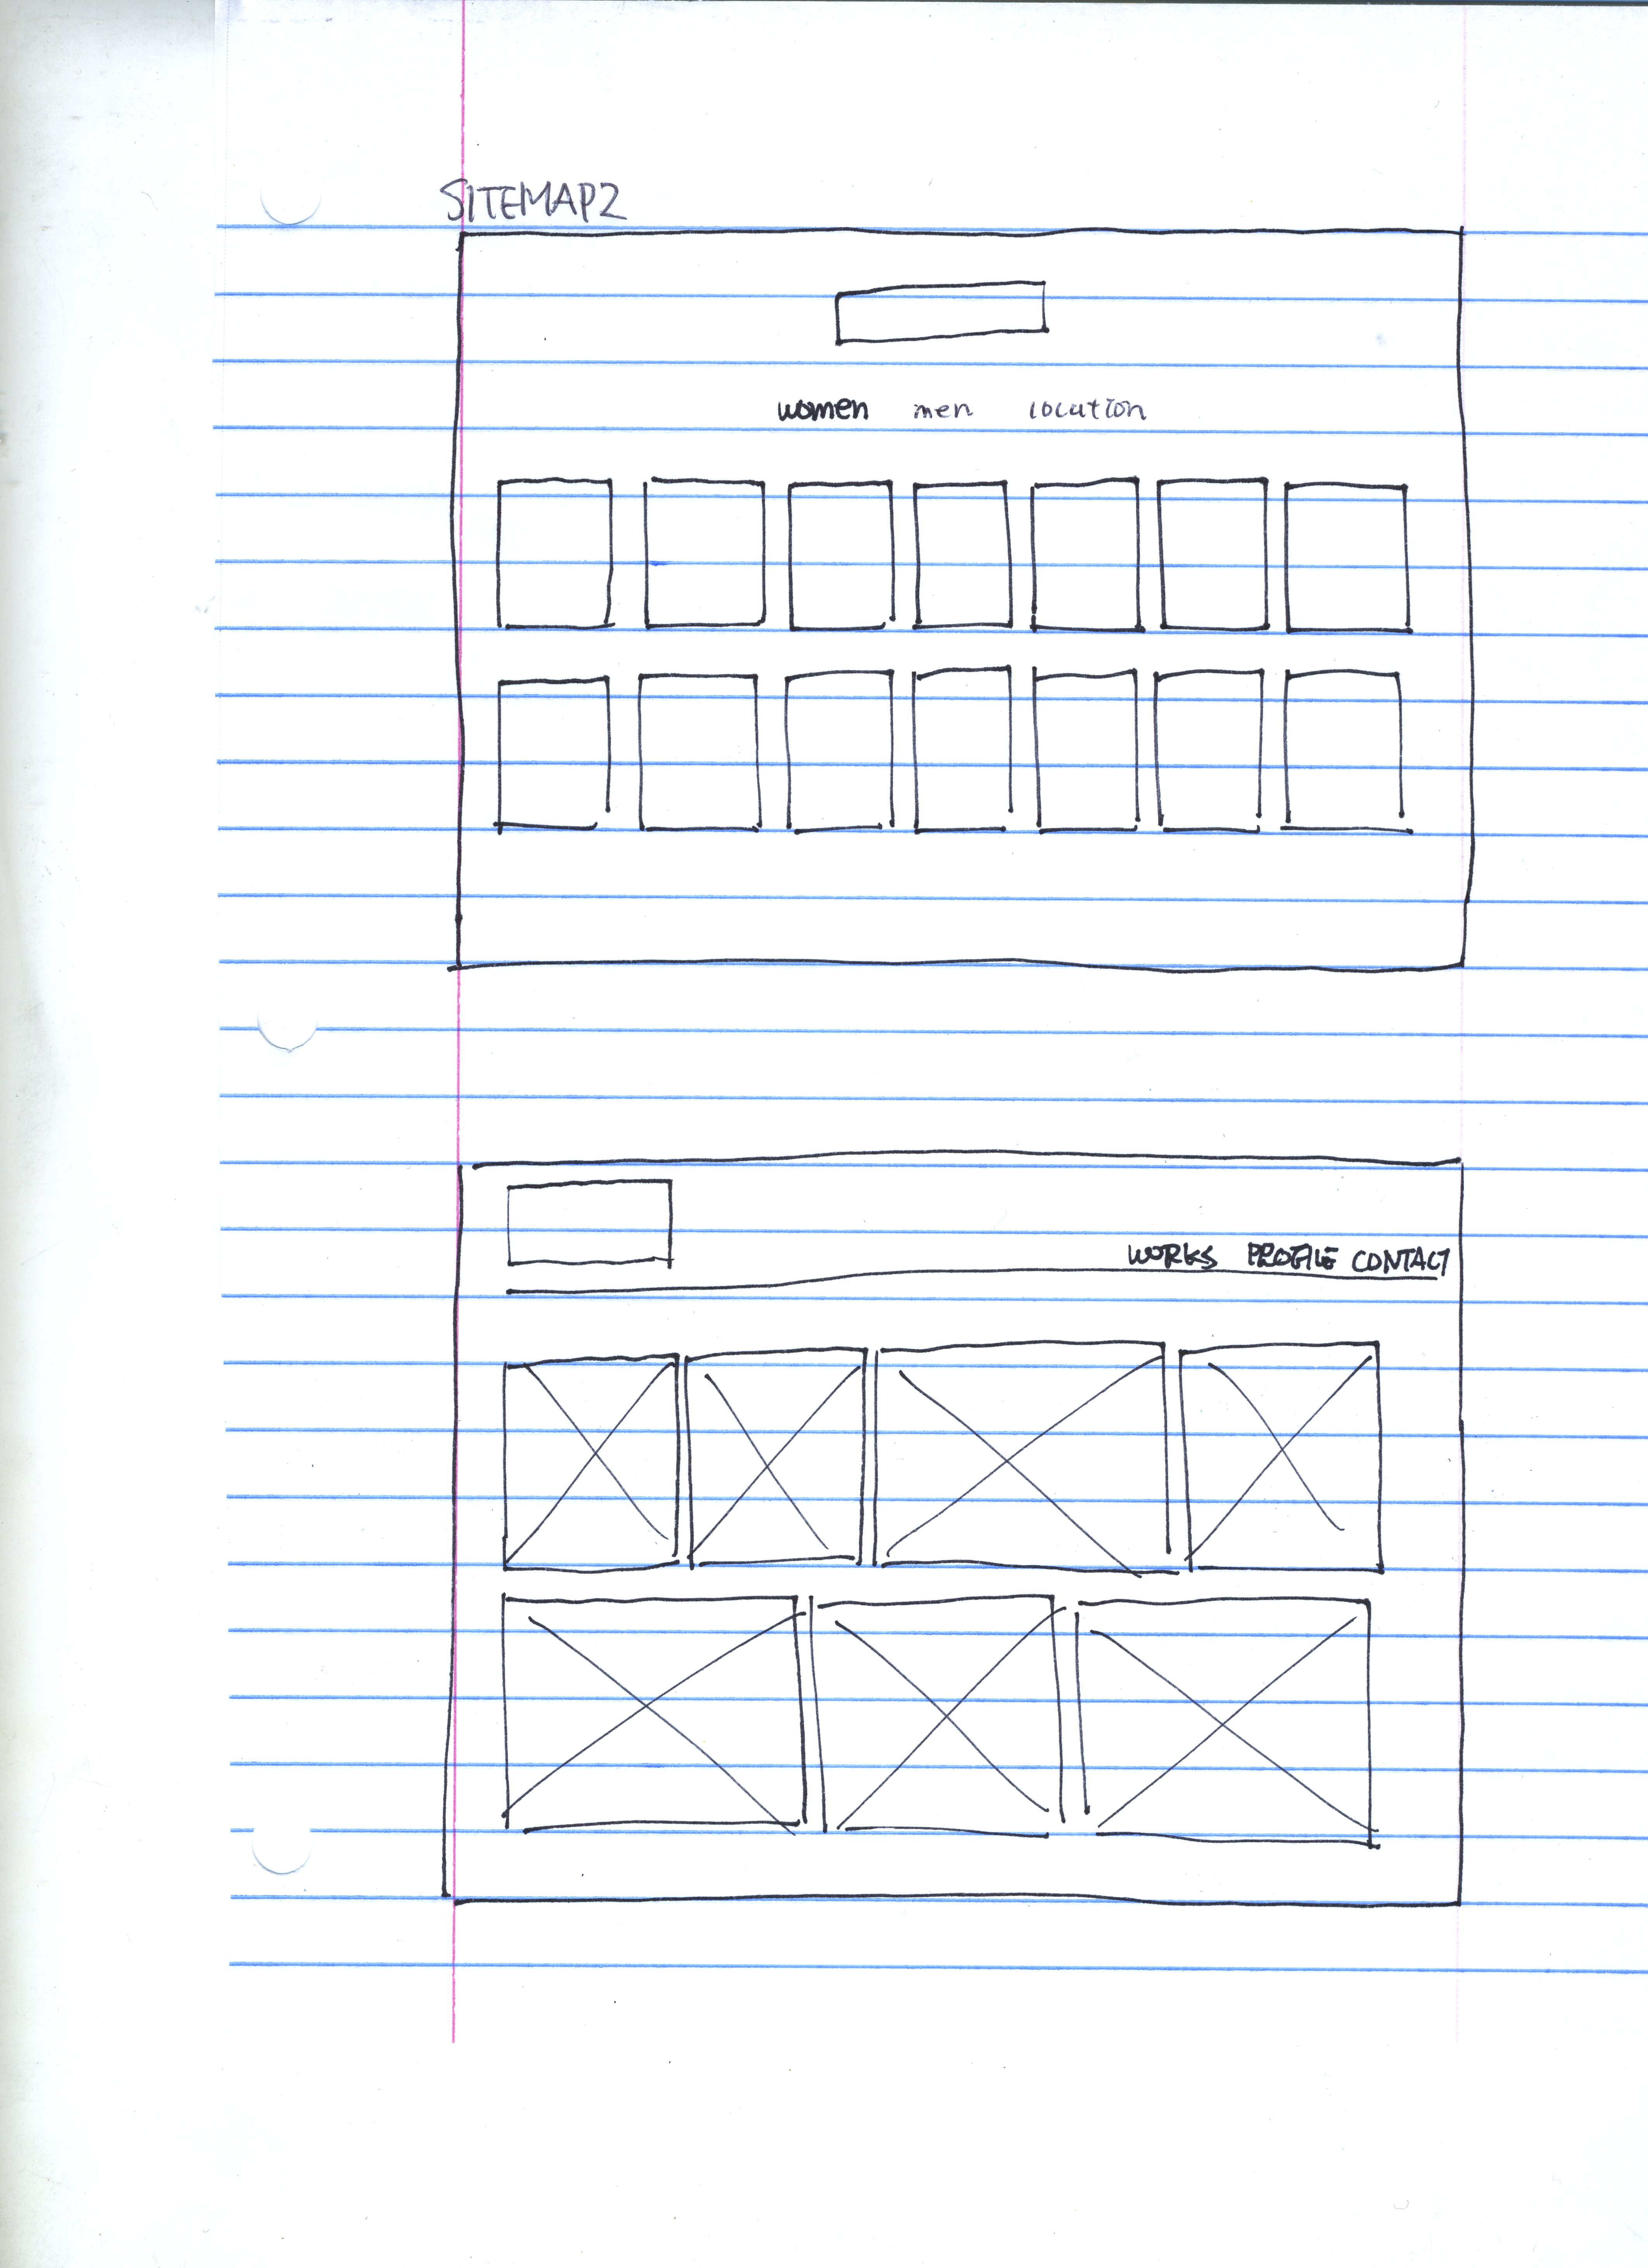 SITEMAP2
women men location
WORKS PROFILE CONTACT